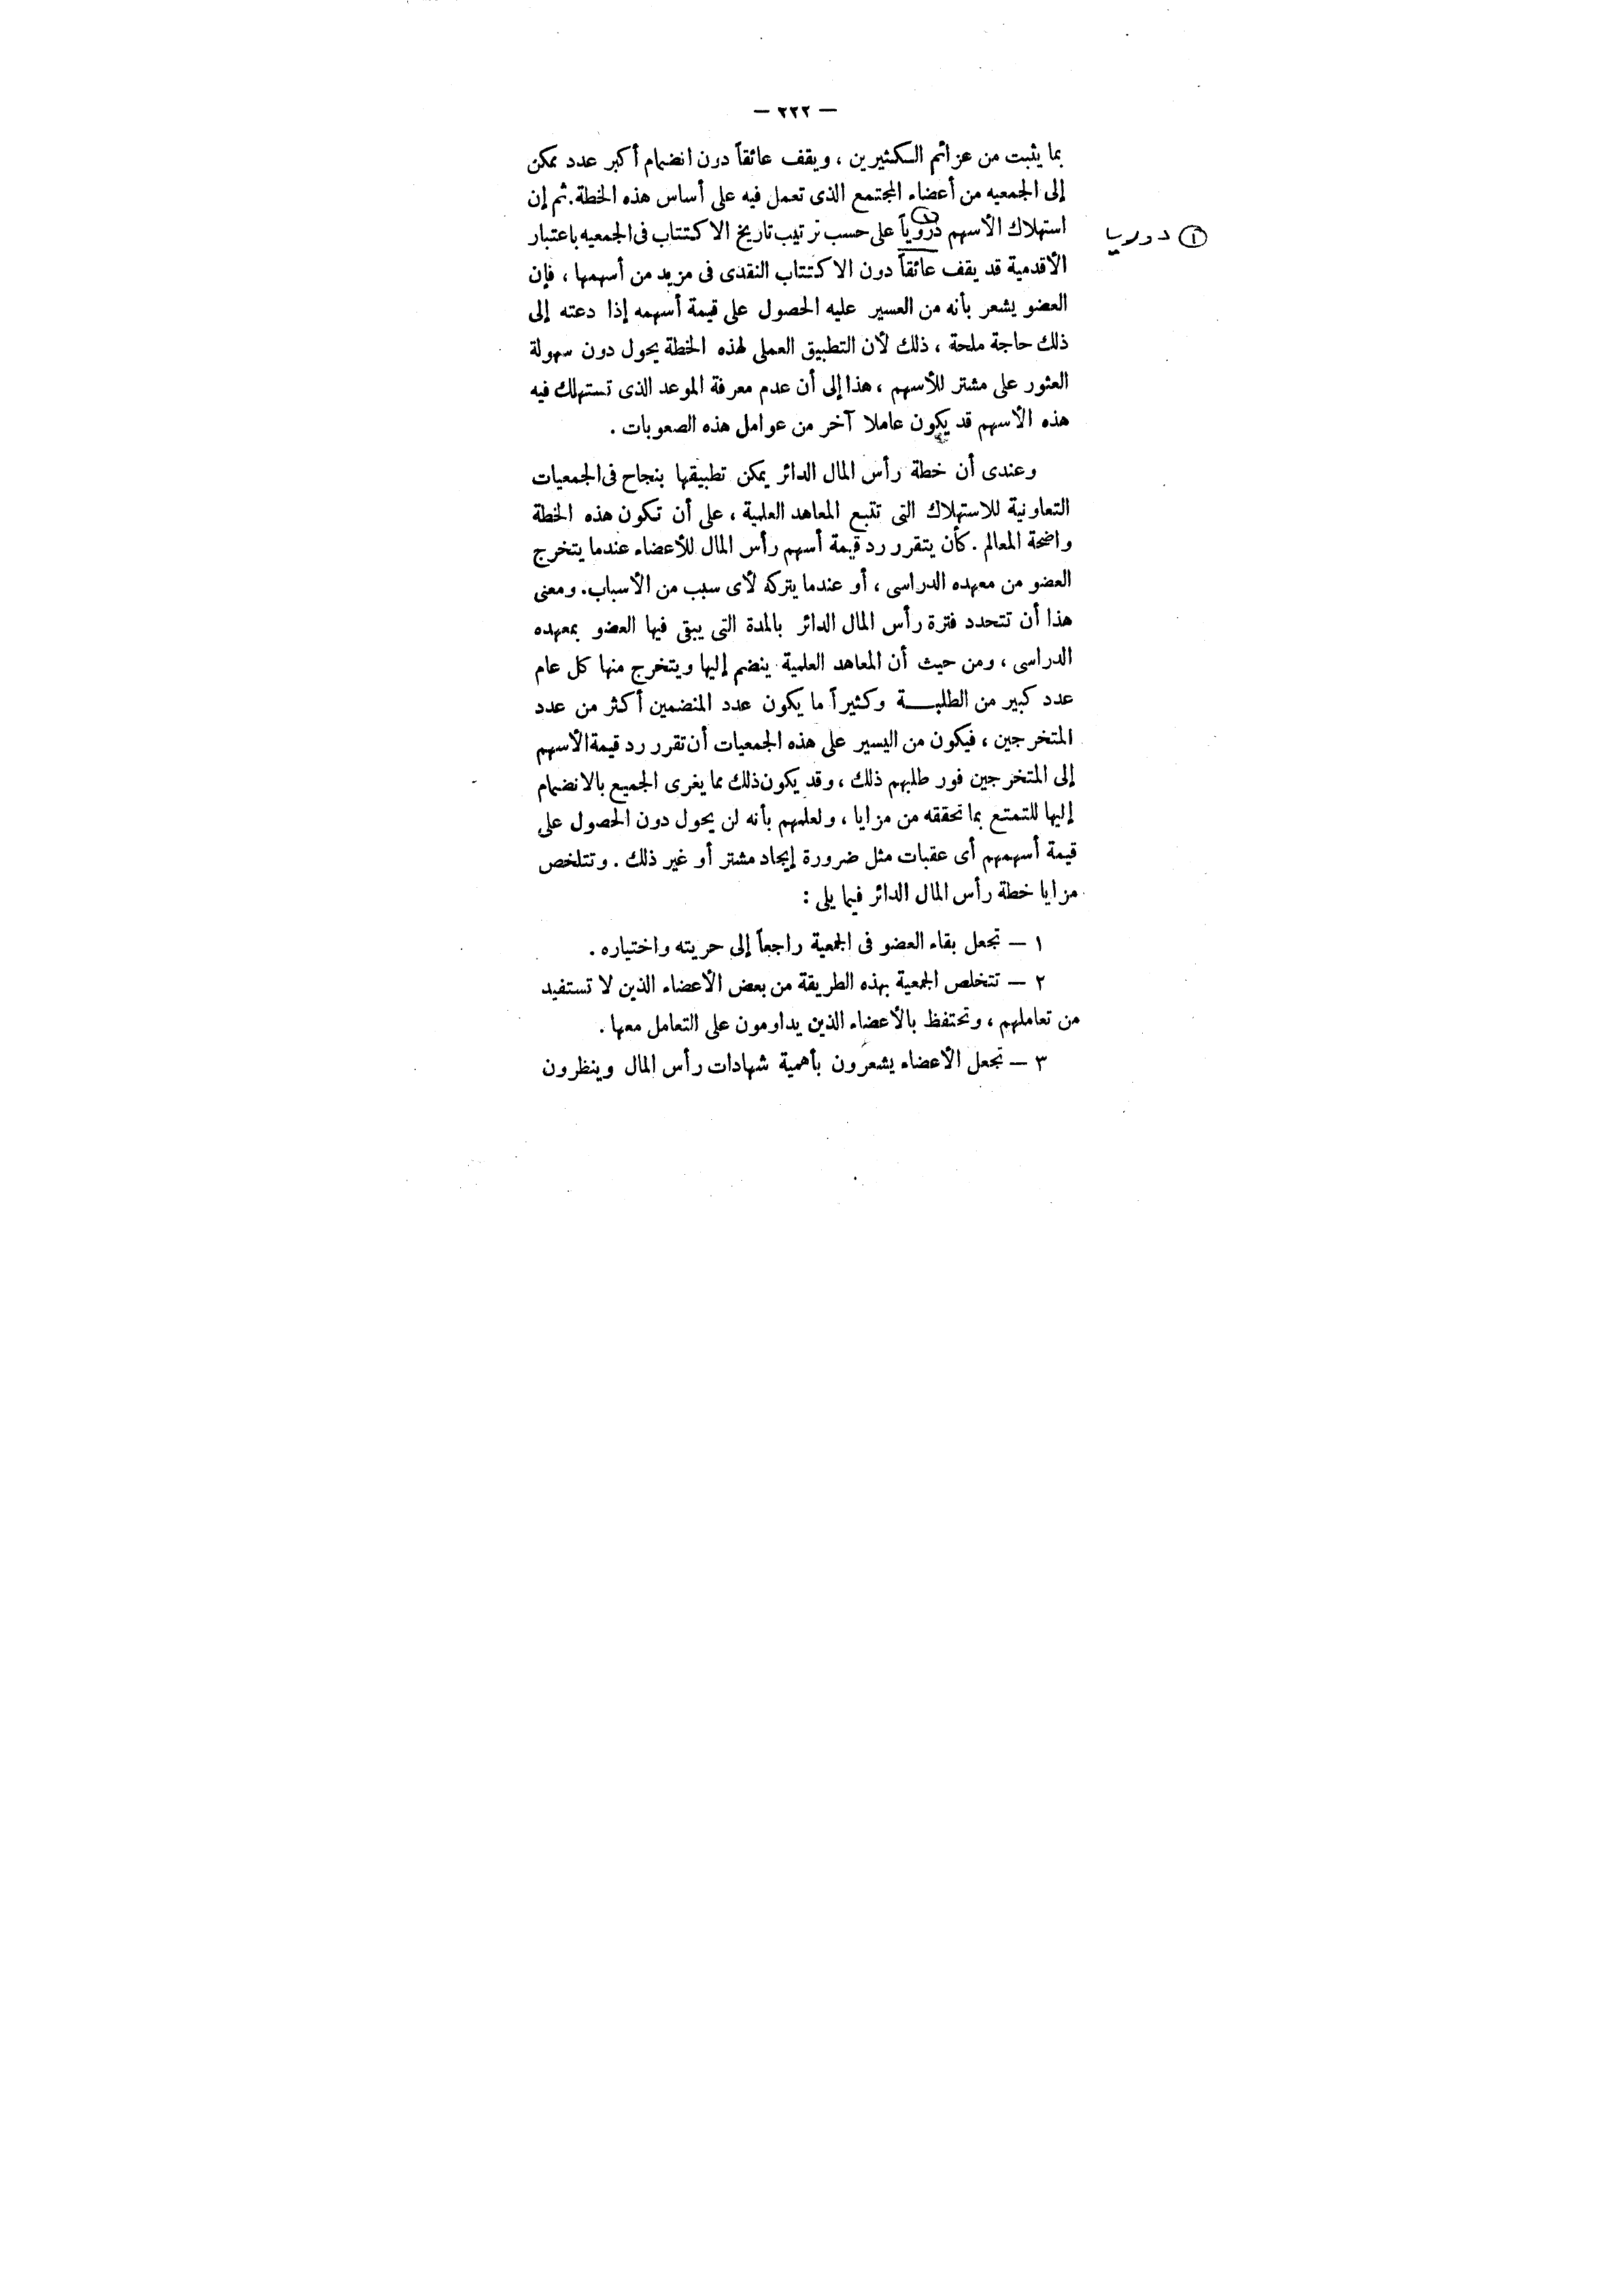 — ٢٢٢ —
بما يثبت من عزائم الكثيرين ، ويقف عائقاً دون انضمام أكبر عدد ممكن
إلى الجمعيه من أعضاء المجتمع الذى تعمل فيه على أساس هذه الخطة. ثم إن
استهلاك الأسهم دروياً على حسب ترتيب تاريخ الاكتتاب فى الجمعيه باعتبار
① دوريا
الأقدمية قد يقف عائقاً دون الاكتتاب النقدى فى مزيد من أسهمها ، فإن
العضو يشعر بأنه من العسير عليه الحصول على قيمة أسهمه إذا دعته إلى
ذلك حاجة ملحة ، ذلك لأن التطبيق العملى لهذه الخطة يحول دون سهولة
العثور على مشتر للأسهم ، هذا إلى أن عدم معرفة الموعد الذى تستهلك فيه
هذه الأسهم قد يكون عاملا آخر من عوامل هذه الصعوبات .
وعندى أن خطة رأس المال الدائر يمكن تطبيقها بنجاح فى الجمعيات
التعاونية للاستهلاك التى تتبع المعاهد العلمية ، على أن تكون هذه الخطة
واضحة المعالم . كأن يتقرر رد قيمة أسهم رأس المال للأعضاء عندما يتخرج
العضو من معهده الدراسى ، أو عندما يتركه لأى سبب من الأسباب. ومعنى
هذا أن تتحدد فترة رأس المال الدائر بالمدة التى يبقى فيها العضو بمعهده
الدراسى ، ومن حيث أن المعاهد العلمية ينضم إليها ويتخرج منها كل عام
عدد كبير من الطلبـــة وكثيراً ما يكون عدد المنضمين أكثر من عدد
المتخرجين ، فيكون من اليسير على هذه الجمعيات أن تقرر رد قيمة الأسهم
إلى المتخرجين فور طلبهم ذلك ، وقد يكون ذلك مما يغرى الجميع بالانضمام
إليها للتمتع بما تحققه من مزايا ، ولعلمهم بأنه لن يحول دون الحصول على
قيمة أسهمهم أى عقبات مثل ضرورة إيجاد مشتر أو غير ذلك . وتتلخص
مزايا خطة رأس المال الدائر فيما يلى :
١ — تجعل بقاء العضو فى الجمعية راجعاً إلى حريته واختياره .
٢ — تتخلص الجمعية بهذه الطريقة من بعض الأعضاء الذين لا تستفيد
من تعاملهم ، وتحتفظ بالأعضاء الذين يداومون على التعامل معها .
٣ — تجعل الأعضاء يشعرون بأهمية شهادات رأس المال وينظرون